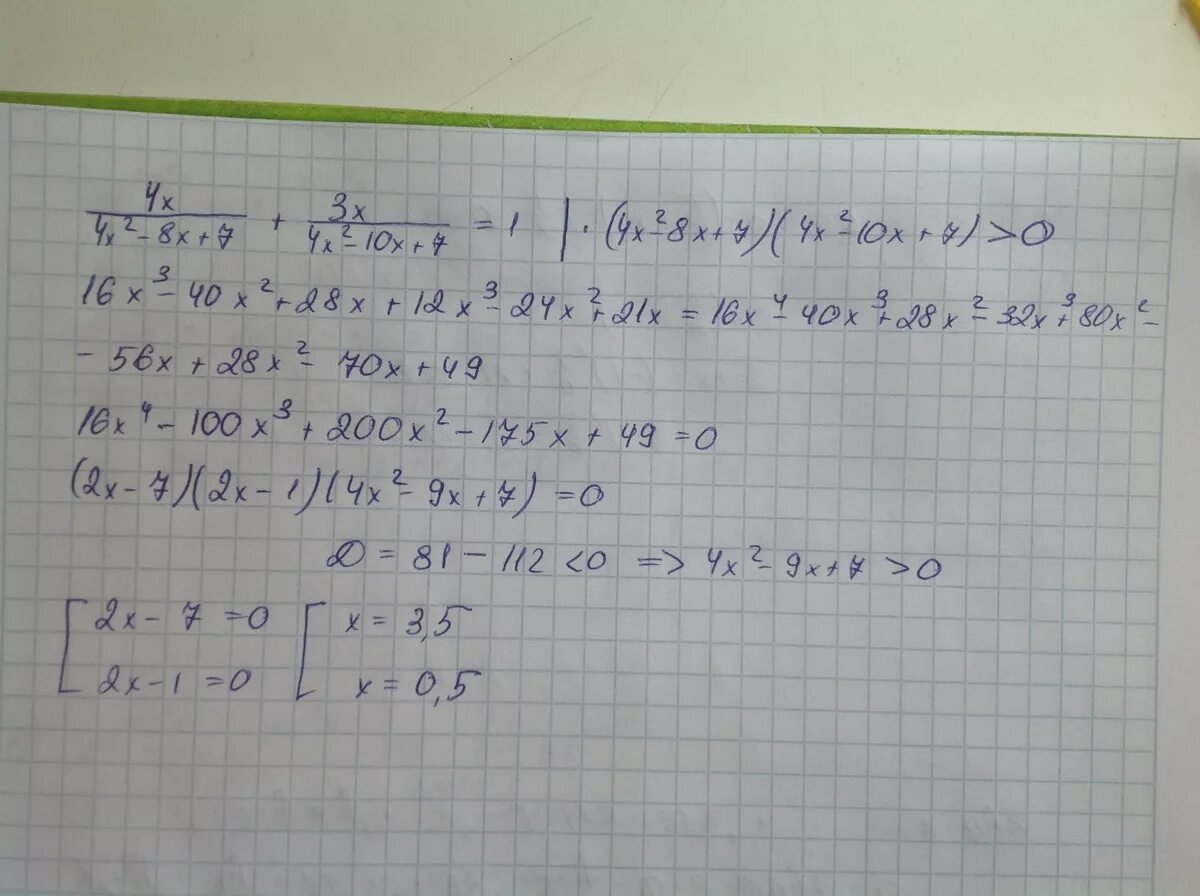 4x/(4x² - 8x + 7) + 3x/(4x² - 10x + 7) = 1 | · (4x² - 8x + 7)(4x² - 10x + 7) > 0
16x³ - 40x² + 28x + 12x³ - 24x² + 21x = 16x⁴ - 40x³ + 28x² - 32x³ + 80x² -
- 56x + 28x² - 70x + 49
16x⁴ - 100x³ + 200x² - 175x + 49 = 0
(2x - 7)(2x - 1)(4x² - 9x + 7) = 0
D = 81 - 112 < 0 => 4x² - 9x + 7 > 0
[ 2x - 7 = 0 [ x = 3,5
2x - 1 = 0 x = 0,5